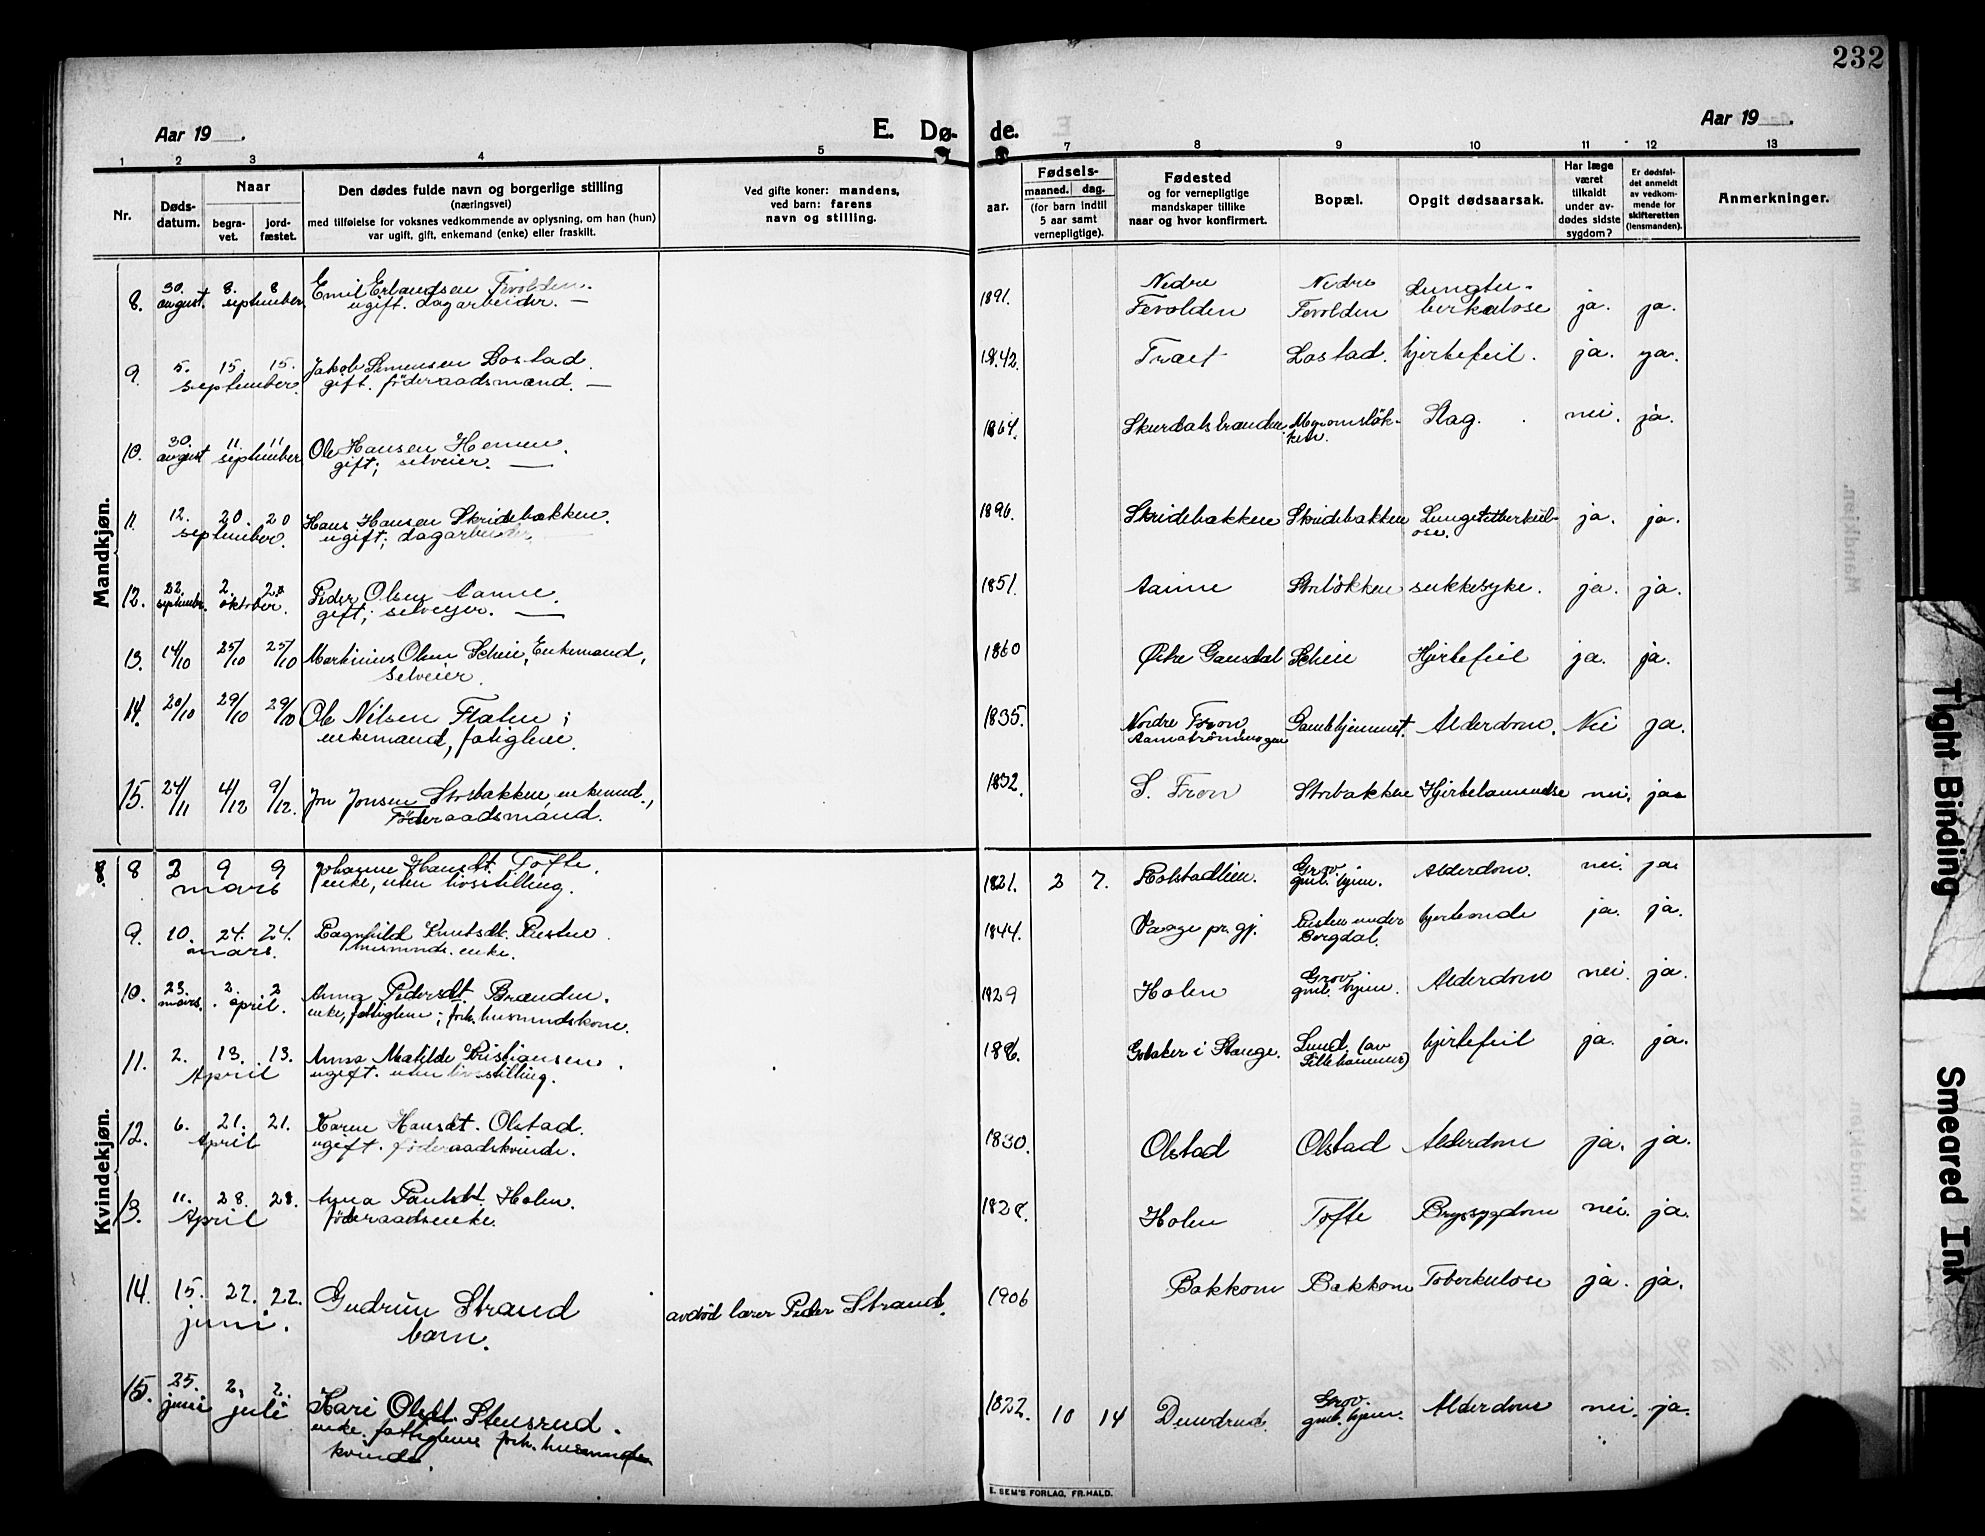 232
Aar 19 .
E. Dø-
de.
Aar 19 .
1 2 3 4 5 7 8 9 10 11 12 13
Nr.
Døds-
datum.
Naar
begra-
vet.
jord-
fæstet.
Den dødes fulde navn og borgerlige stilling
(næringsvei)
med tilføielse for voksnes vedkommende av oplysning, om han (hun)
var ugift, gift, enkemand (enke) eller fraskilt.
Ved gifte koner: mandens,
ved barn: farens
navn og stilling.
Fødsels-
aar.
maaned. dag.
(for barn indtil
5 aar samt
vernepligtige).
Fødested
og for vernepligtige
mandskaper tillike
naar og hvor konfirmert.
Bopæl.
Opgit dødsaarsak.
Har læge
været
tilkaldt
under av-
dødes sidste
sygdom?
Er dødsfal-
det anmeldt
av vedkom-
mende for
skifteretten
(lensmanden).
Anmerkninger.
Mandkjøn.
8. 30. august. 8. 8 september. Emil Erlandsen Fevolden.
ugift. dagarbeider. —
1891. Nedre Fevolden Nedre Fevolden Lungtu-
berkulose ja. ja.
9. 5. 15. 15. september Jakob Simensen Lostad
gift. føderaadsmand. —
1842. Træet Lostad. hjertefeil. ja. ja.
10. 30. august 11. 11 september Ole Hansen Hemen.
gift; selveier. —
1864. Skurdalsbranden Slag. nei. ja.
11. 12. 20. 20 september. Hans Hansen Skridebakken.
ugift; dagarbeider.
1896. Skridebakken Skridebakken Lungetuberkul-
ose. ja. ja.
12. 22. septembr. 2. 2 oktober. Peder Olsen Aanne.
gift; selveyer. —
1851. Aanne Storløkken sukkesyke. ja. ja.
13. 14/10 25/10 25/10 Martinius Olsen Scheie, Enkemand,
selveier.
1860 Østre Gausdal Scheie Hjertefeil ja. ja.
14. 20/10 29/10 29/10 Ole Nilsen Flaten;
enkemand, fatiglem.
1835. Nordre Fron Gamlehjemmet. Alderdom. Nei ja.
15. 24/11 4/12 9/12. Jon Jonsen Storbakken, enkemd.,
Føderaadsmand.
1832. S. Fron Storbakken Hjertelammelse nei. ja.
Kvindekjøn.
8 2 9 9 mars Johanne Hansdt. Tofte.
enke, uten livsstilling.
1821. 2 7. Rolstadlien. Grov.
gml. hjem. Alderdom. nei. ja.
9. 10. 24. 24. mars. Ragnhild Knutsdt. Rusten.
husmnds. enke.
1844. Vaage pr. gj. Rusten under
Bergdal. hjertende ja. ja.
10. 23. mars. 2. 2 april. Anna Pedersdt. Brænden.
enke, fattiglem; forh. husmandskone.
1829 Holen Grov
gml. hjem. Alderdom nei. ja.
11. 2. 13. 13. April Anna Matilde Kristiansen.
ugift. uten livsstilling.
1896. i Stange. Lund. (av
Lillehammer) hjertefeil ja. ja.
12. 6. 21. 21. April Karen Hansdt. Olstad.
ugift. føderaadskvinde.
1830. Olstad Olstad Alderdom ja. ja.
13. 11. 28. 28. April Anna Paulsdt. Holen.
føderaadsenke.
1828. Holen Tofte Brystsygdom nei. ja.
14. 15. 22. 22. juni. Gudrun Strand
barn.
avdød lærer Peder Strand.
1906 Bakkom Bakkom Toberkulose ja. ja.
15. 25. juni 2. 2. juli Kari Olsdt. Stensrud.
enke. fattiglem forh. husmands
kvinde.
1822. 10 14 Grov.
gml. hjem. Alderdom nei. ja.
E. SEM'S FORLAG, FR.HALD.
Tight Binding
Smeared Ink